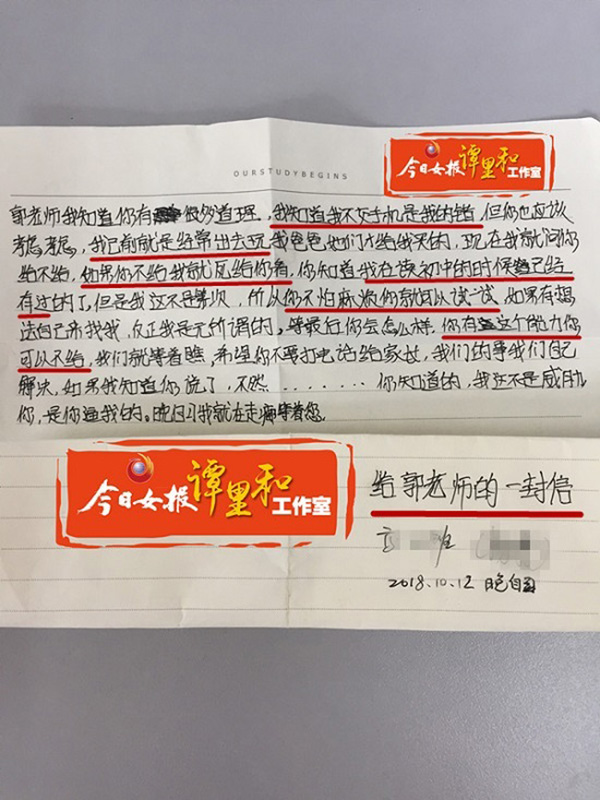 OURSTUDYBEGINS
今日女报 谭里和 工作室
郭老师我知道你有很多道理,我知道我不交手机是我的错,但你也应该
考虑,考虑,我已前就是经常出去玩,我爸爸他们才给我买的,现在我就问你
给不给,如果你不给我就死给你看,你知道我在读初中的时候已经
有过的了,但是我这不是第一次,所以你不怕麻烦你就可以试一试,如果有想
法自己来找我,反正我是无所谓的,等最后你会怎么样,你有这个能力你
可以不给,我们就等着瞧,希望你不要打电话给家长,我们的事我们自己
解决,如果我知道你说了,不然.......你知道的,我这不是威胁
你,是你逼我的。晚自习我就在走等着您.
今日女报 谭里和 工作室
给郭老师的一封信
班
2018.10.12 晚自